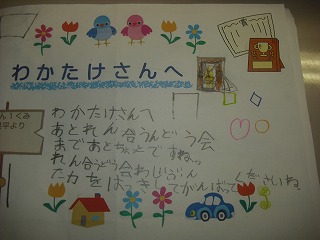 わかたけさんへ
わかたけさんへ
あとれん合うんどう会
まであとちょっとですね。
れん合うんどう会わじぶん
たカをはっきしてがんばってくださいね
くみ
より